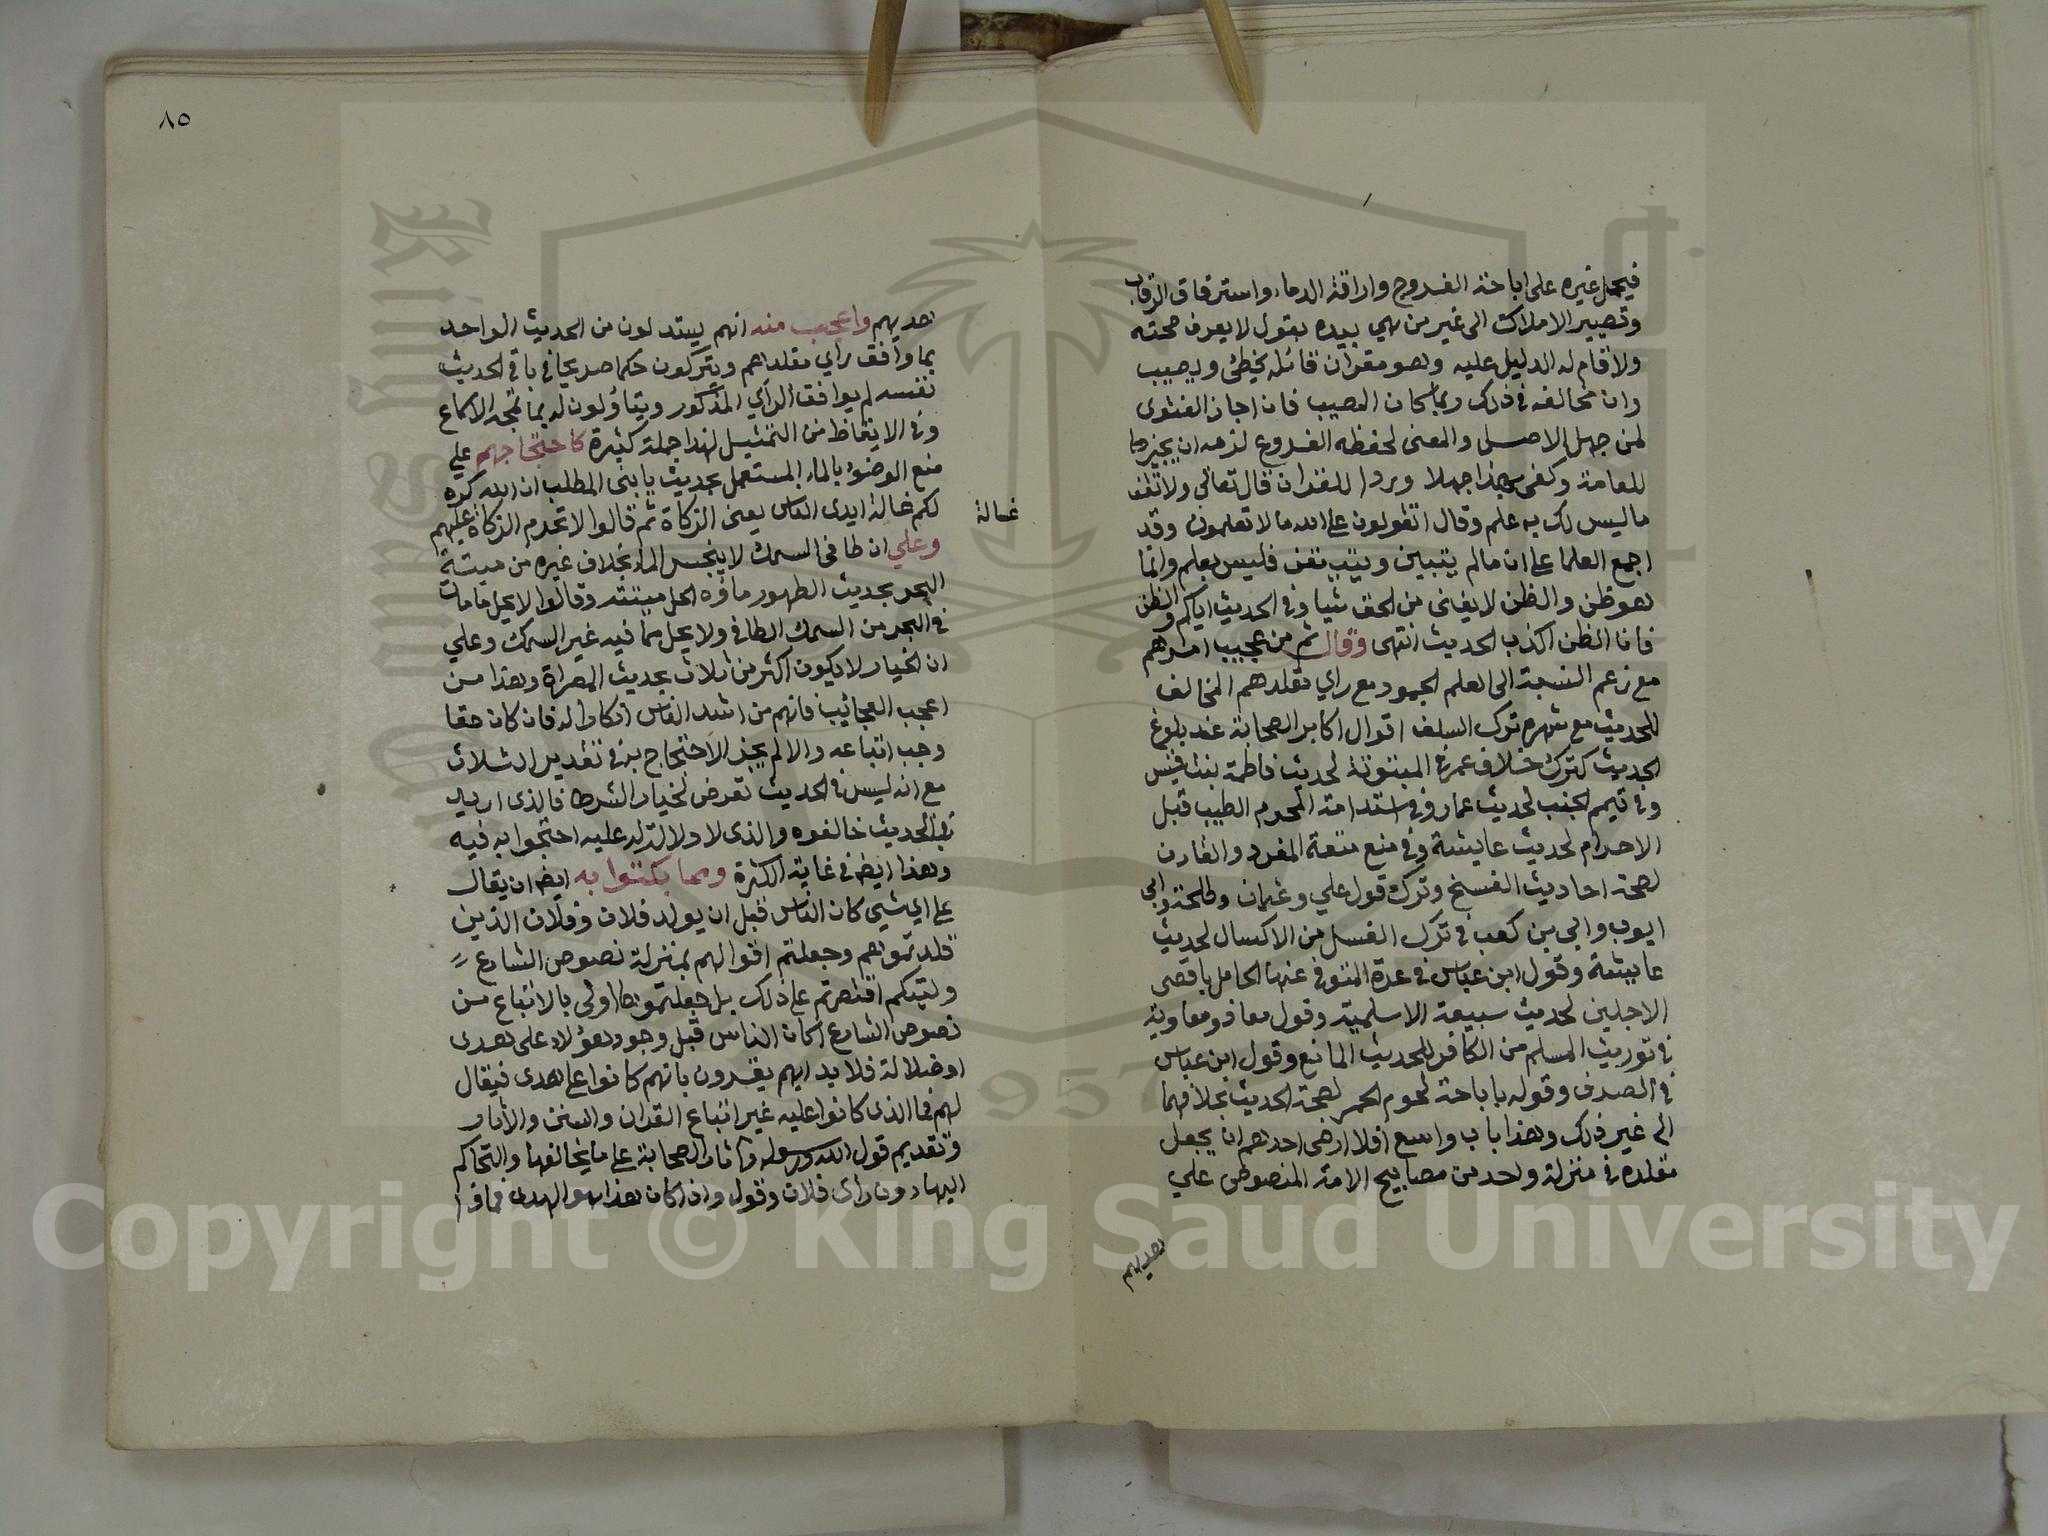 فيحمل غيره على اباحة الفروج واراقة الدماء واسترقاق الرقاب
وتصيير الاملاك الى غير من هي بيده بقول لا يعرف صحته
ولا قام له الدليل عليه وهو مقر ان قائله يخطئ ويصيب
وان مخالفه في ذلك ربما كان المصيب فان اجاز الفتوى
لمن جهل الاصل والمعنى لحفظه الفروع لزمه ان يجيزها
للعامة وكفى بهذا جهلا وردا للقران قال تعالى ولا تقف
ما ليس لك به علم وقال اتقولون على الله ما لا تعلمون وقد
اجمع العلما على ان ما لم يتبين ويتيقن فليس بعلم وانما
هو ظن والظن لا يغنى من الحق شيا وفي الحديث اياكم والظن
فان الظن اكذب الحديث انتهى وقال ثم من عجيب امرهم
مع زعم النسبة الى العلم الجمود مع راي مقلدهم المخالف
للحديث مع شهرة ترك السلف اقوال اكابر الصحابة عند بلوغ
الحديث كترك خلاف عمر في المبتوتة لحديث فاطمة بنت قيس
وفي تيمم الجنب لحديث عمار وفي استدامة المحرم الطيب قبل
الاحرام لحديث عايشة وفي منع متعة المفرد والقارن
لصحة احاديث الفسخ وترك قول علي وعثمان وطلحة وابي
ايوب وابي بن كعب في ترك الغسل من الاكسال لحديث
عايشة وقول ابن عباس في عدة المتوفى عنها الحامل باقصى
الاجلين لحديث سبيعة الاسلمية وقول معاذ ومعاوية
في توريث المسلم من الكافر للحديث المانع وقول ابن عباس
في الصرف وقوله باباحة لحوم الحمر لصحة الحديث بخلافهما
الى غير ذلك وهذا باب واسع افلا ارضى احدهم ان يجعل
مقلده في منزلة واحد من مصابيح الامة المنصوص علي
هديهم
٨٥
هديهم واعجب منه انهم يستدلون من الحديث الواحد
بما وافق راي مقلدهم ويتركون حكما صريحا في باقي الحديث
نفسه لم يوافق الرأي المذكور ويتأولون له بما تمجه الاسماع
وفي الايقاظ من التمثيل لهذا جملة كثيرة كاحتجاجهم علي
منع الوضوء بالماء المستعمل بحديث يا بنى المطلب ان الله كره
لكم غسالة ايدى الناس يعنى الزكاة ثم قالوا لا تحرم الزكاة عليهم
غسالة
وعلي ان طافى السمك لا ينجس الماء بخلاف غيره من ميتة
البحر بحديث الطهور ماؤه الحل ميتته وقالوا لا يحل ما مات
في البحر من السمك الطافي ولا يحل مما فيه غير السمك وعلي
ان الخيار لا يكون اكثر من ثلاث بحديث المصراة وهذا من
اعجب العجائب فانهم من اشد الناس انكارا له فان كان حقا
وجب اتباعه والا لم يجز الاحتجاج به في تقدير الثلاث
مع انه ليس في الحديث تعرض لخيار الشرط فالذى اريد
بالحديث خالفوه والذى لا دلالة له عليه احتجوا به فيه
وهذا ايضا في غاية الكثرة ومما يكتوا به ايضا ان يقال
على اي شي كان الناس قبل ان يولد فلان وفلان الذين
قلدتموهم وجعلتم اقوالهم بمنزلة نصوص الشارع
وليتكم اقتصرتم على ذلك بل جعلتموها اولى بالاتباع من
نصوص الشارع اكان الناس قبل وجود هؤلاء على هدى
او ضلالة فلا بد انهم يقرون بانهم كانوا على هدى فيقال
لهم فما الذى كانوا عليه غير اتباع القران والسنن والأثار
وتقديم قول الله ورسوله واثار الصحابة على ما يخالفها والتحاكم
اليها دون راى فلان وقوله واذا كان هذا هو الهدى فماذا
Copyright © King Saud University
1957